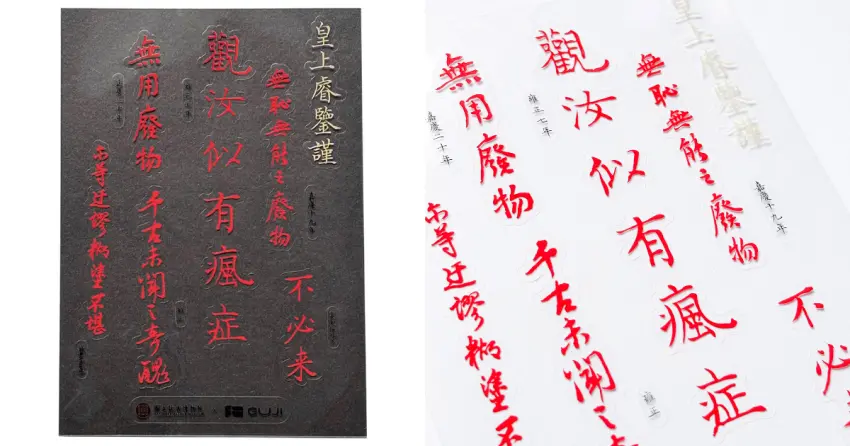 皇上睿鑒謹
無恥無能之廢物
嘉慶十九年
不必来
觀汝似有瘋症
雍正七年
千古未聞之奇醜
雍正
無用廢物
嘉慶二十年
尔等迂謬糊塗不堪
國立故宮博物院 × GUJI
皇上睿鑒謹
無恥無能之廢物
嘉慶十九年
不必
觀汝似有瘋症
雍正七年
千古未聞之奇
雍正
無用廢物
嘉慶二十年
尔等迂謬糊塗不堪